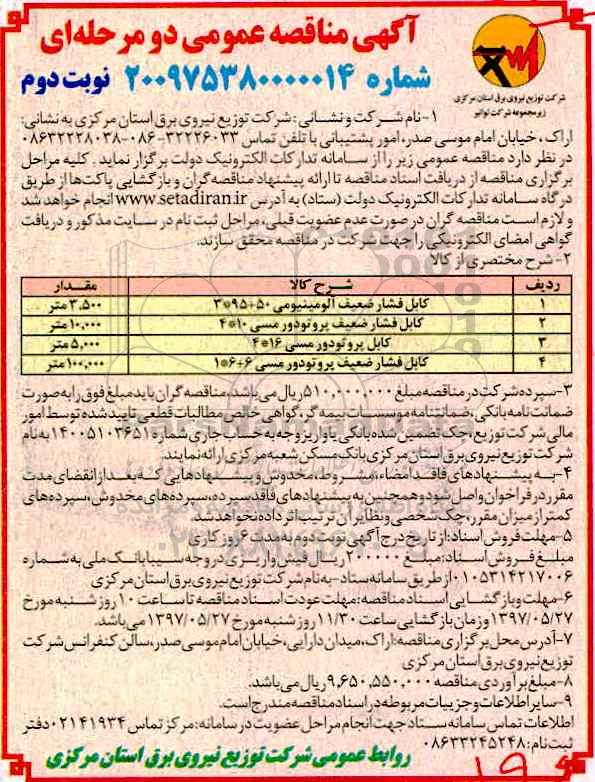 آگهی مناقصه عمومی دو مرحله‌ای
شماره ۲۰۰۹۷۵۳۸۰۰۰۰۰۱۴ نوبت دوم
شرکت توزیع نیروی برق استان مرکزی
زیرمجموعه شرکت توانیر
۱- نام شرکت و نشانی: شرکت توزیع نیروی برق استان مرکزی به نشانی:
اراک، خیابان امام موسی صدر، امور پشتیبانی با تلفن تماس ۳۲۲۲۶۰۳۳-۰۸۶ ۰۸۶۳۲۲۲۸۰۳۸
در نظر دارد مناقصه عمومی زیر را از سامانه تدارکات الکترونیک دولت برگزار نماید. کلیه مراحل
برگزاری مناقصه از دریافت اسناد مناقصه تا ارائه پیشنهاد مناقصه گران و بازگشایی پاکت‌ها از طریق
درگاه سامانه تدارکات الکترونیک دولت (ستاد) به آدرس www.setadiran.ir انجام خواهد شد
و لازم است مناقصه گران در صورت عدم عضویت قبلی، مراحل ثبت نام در سایت مذکور و دریافت
گواهی امضای الکترونیکی را جهت شرکت در مناقصه محقق سازند.
۲- شرح مختصری از کالا
ردیف شرح کالا مقدار
۱ کابل فشار ضعیف آلومینیومی ۵۰+۹۵*۳ ۳,۵۰۰ متر
۲ کابل فشار ضعیف پروتودور مسی ۱۰*۴ ۱۰,۰۰۰ متر
۳ کابل پروتودور مسی ۱۶*۴ ۵,۰۰۰ متر
۴ کابل فشار ضعیف پروتودور مسی ۶+۶*۱ ۱۰۰,۰۰۰ متر
۳- سپرده شرکت در مناقصه مبلغ ۵۱۰,۰۰۰,۰۰۰ ریال می باشد، مناقصه گران باید مبلغ فوق را به صورت
ضمانت نامه بانکی، ضمانتنامه موسسات بیمه گر، گواهی خالص مطالبات قطعی تایید شده توسط امور
مالی شرکت توزیع، چک تضمین شده بانکی یا واریز وجه به حساب جاری شماره ۱۴۰۰۵۱۰۳۶۵۱ به نام
شرکت توزیع نیروی برق استان مرکزی بانک مسکن شعبه مرکزی ارائه نمایند.
۴- به پیشنهادهای فاقد امضاء، مشروط، مخدوش و پیشنهادهایی که بعد از انقضای مدت
مقرر در فراخوان واصل شود و همچنین به پیشنهادهای فاقد سپرده، سپرده‌های مخدوش، سپرده‌های
کمتر از میزان مقرر، چک شخصی و نظایر آن ترتیب اثر داده نخواهد شد.
۵- مهلت فروش اسناد: از تاریخ درج آگهی نوبت دوم به مدت ۶ روز کاری
مبلغ فروش اسناد: مبلغ ۲۰۰۰۰۰ ریال فیش واریزی در وجه سیبا بانک ملی به شماره
۰۱۰۵۳۱۴۲۱۷۰۰۶ از طریق سامانه ستاد - به نام شرکت توزیع نیروی برق استان مرکزی
۶- مهلت و بازگشایی اسناد مناقصه: مهلت عودت اسناد مناقصه تا ساعت ۱۰ روز شنبه مورخ
۱۳۹۷/۰۵/۲۷ و زمان بازگشایی ساعت ۱۱/۳۰ روز شنبه مورخ ۱۳۹۷/۰۵/۲۷ می باشد.
۷- آدرس محل برگزاری مناقصه: اراک، میدان دارایی، خیابان امام موسی صدر، سالن کنفرانس شرکت
توزیع نیروی برق استان مرکزی
۸- مبلغ برآوردی مناقصه ۹,۶۵۰,۵۵۰,۰۰۰ ریال می باشد.
۹- سایر اطلاعات و جزییات مربوطه در اسناد مناقصه مندرج است.
اطلاعات تماس سامانه ستاد جهت انجام مراحل عضویت در سامانه: مرکز تماس ۰۲۱۴۱۹۳۴ دفتر
ثبت نام: ۰۸۶۳۳۲۴۵۲۴۸
روابط عمومی شرکت توزیع نیروی برق استان مرکزی